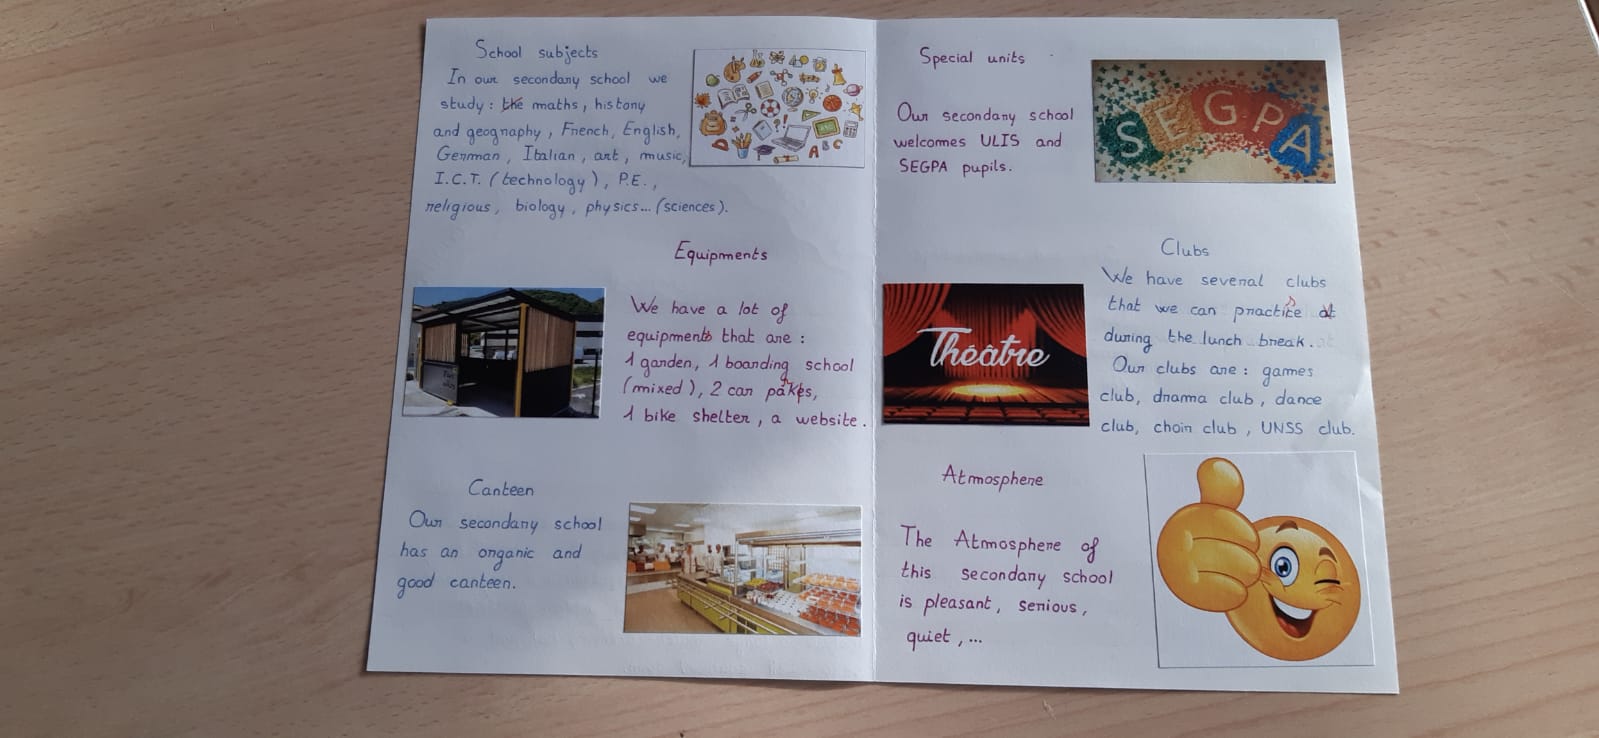 School subjects
In our secondary school we
study: the maths, history
and geography, French, English,
German, Italian, art, music,
I.C.T. (technology), P.E.,
religious, biology, physics... (sciences).
Equipments
We have a lot of
equipments that are:
1 garden, 1 boarding school
(mixed), 2 car parks,
1 bike shelter, a website.
Canteen
Our secondary school
has an organic and
good canteen.
Special units
Our secondary school
welcomes ULIS and
SEGPA pupils.
SEGPA
Clubs
We have several clubs
that we can practise at
during the lunch break.
Our clubs are: games
club, drama club, dance
club, choir club, UNSS club.
Théâtre
Atmosphere
The Atmosphere of
this secondary school
is pleasant, serious,
quiet, ...
ABC